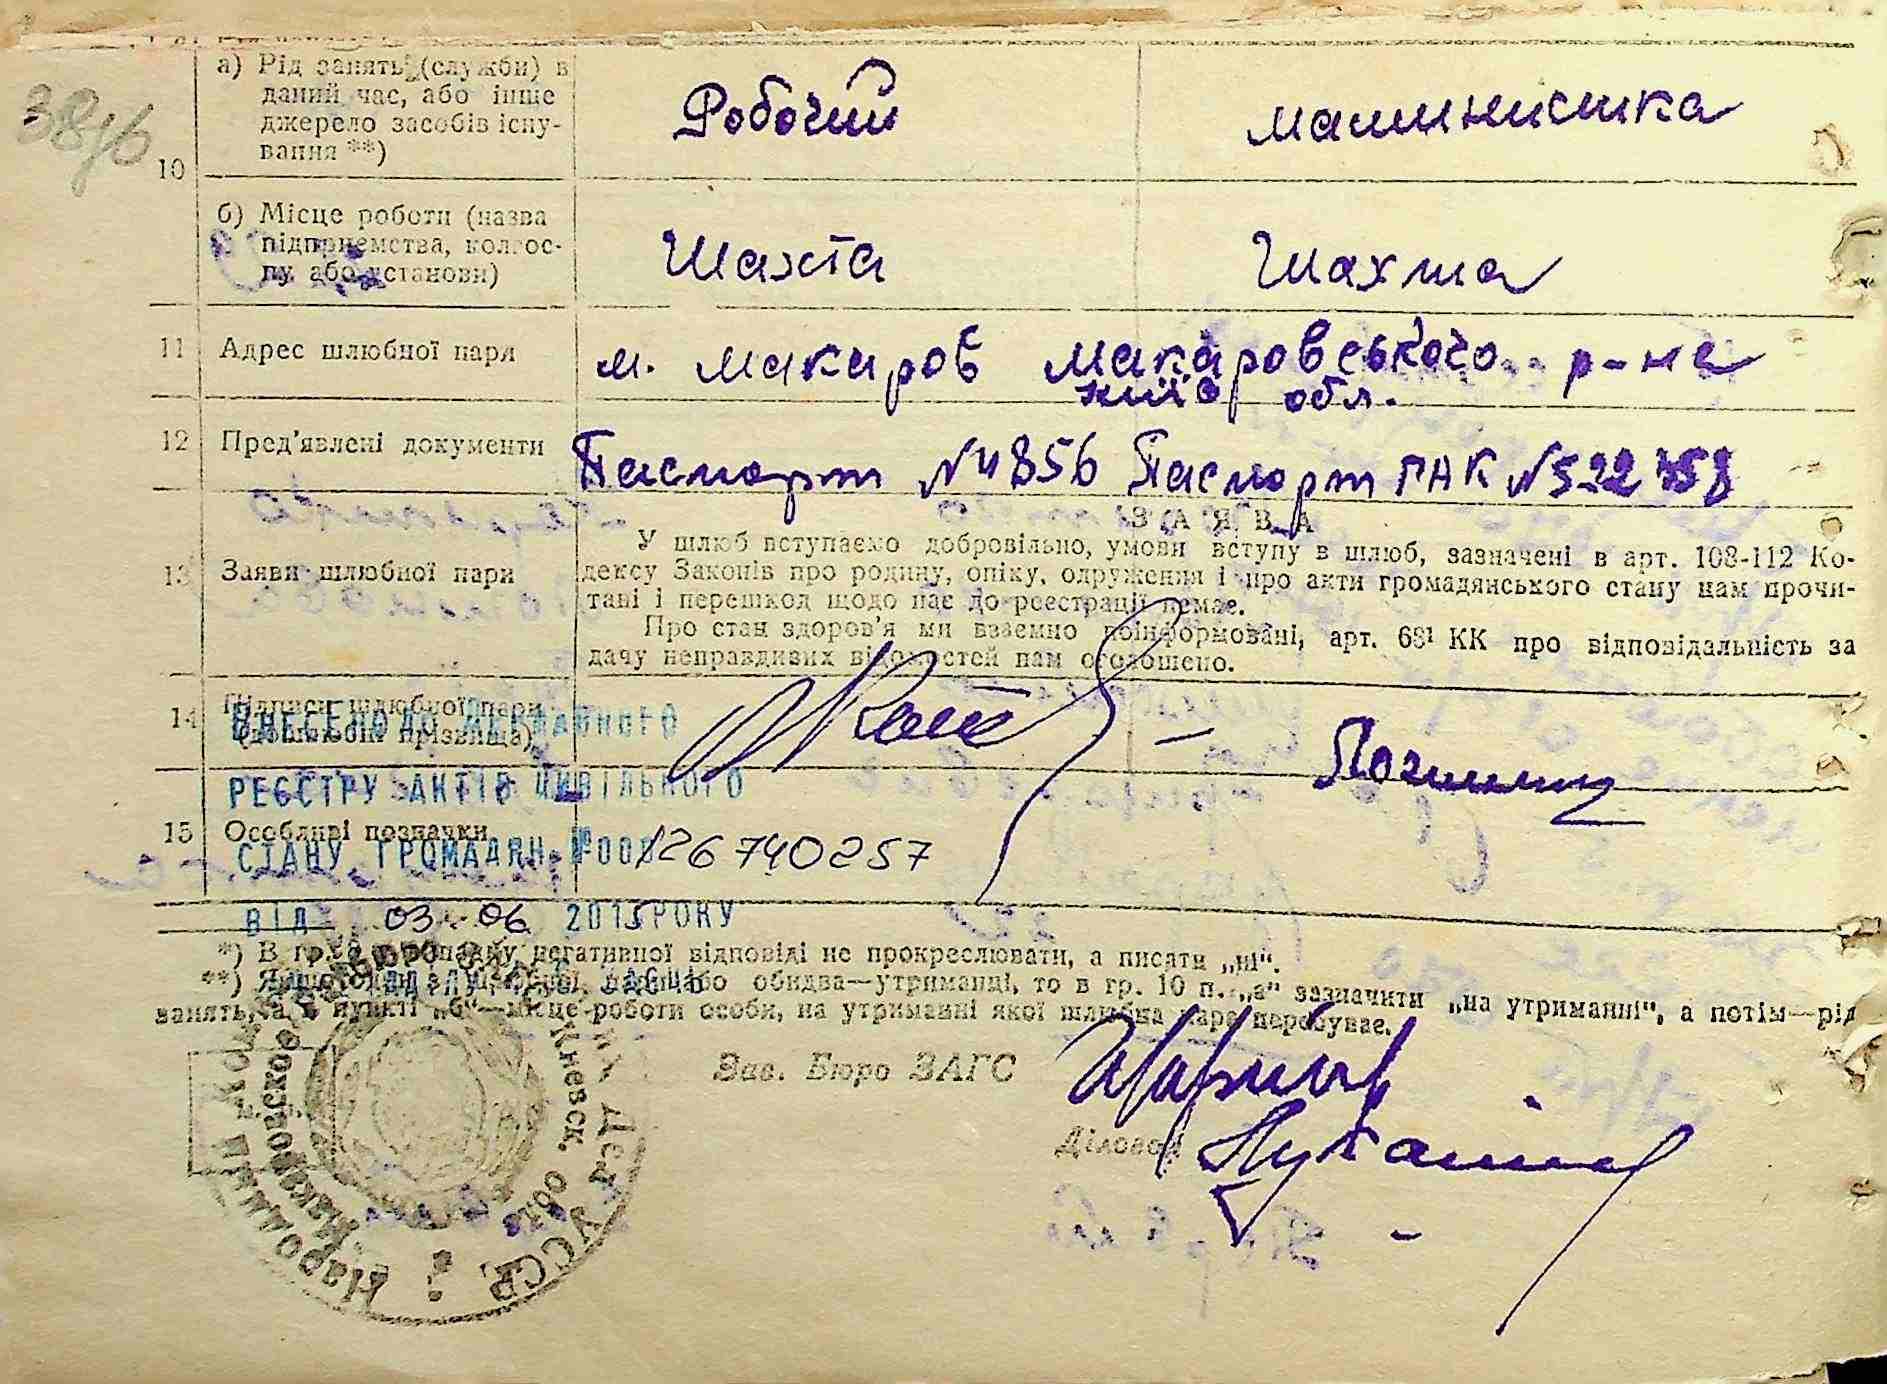 38/б
а) Рід занять (служби) в
даний час, або інше
джерело засобів існу-
вання **)
Робочий
машинистка
10
б) Місце роботи (назва
підприемства, колгос-
пу або установи)
Шахта
Шахта
11 Адрес шлюбної пари
м. Макаров Макаровського р-на
київ обл.
12 Пред'явлені документи
Паспорт № 4856 Паспорт ГНК № 522758
ЗАЯВА
13 Заяви шлюбної пари
У шлюб вступаємо добровільно, умови вступу в шлюб, зазначені в арт. 108-112 Ко-
дексу Законів про родину, опіку, одруження і про акти громадянського стану нам прочи-
тані і перешкод щодо нас до реестрації немає.
Про стан здоров'я ми взаємно поінформовані, арт. 68¹ КК про відповідальність за
дачу неправдивих відомостей нам оголошено.
14 Підписи шлюбної пари
(дошлюбні прізвища)
ВНЕСЕНО ДО ДЕРЖАВНОГО
РЕЄСТРУ АКТІВ ЦИВІЛЬНОГО
15 Особливі позначки
СТАНУ ГРОМАДЯН №00126740257
ВІД 03.06 2015 РОКУ
*) В гр. негативної відповіді не прокреслювати, а писати „ні“.
**) Якщо або обидва—утриманці, то в гр. 10 п. „а“ зазначити „на утриманні“, а потім—рід
занять, а в пункті „б“—місце роботи особи, на утриманні якої шлюбна пара перебуває.
Зав. Бюро ЗАГС
Діловод
Народный Дел УССР
Макаровское Киевск. обл.